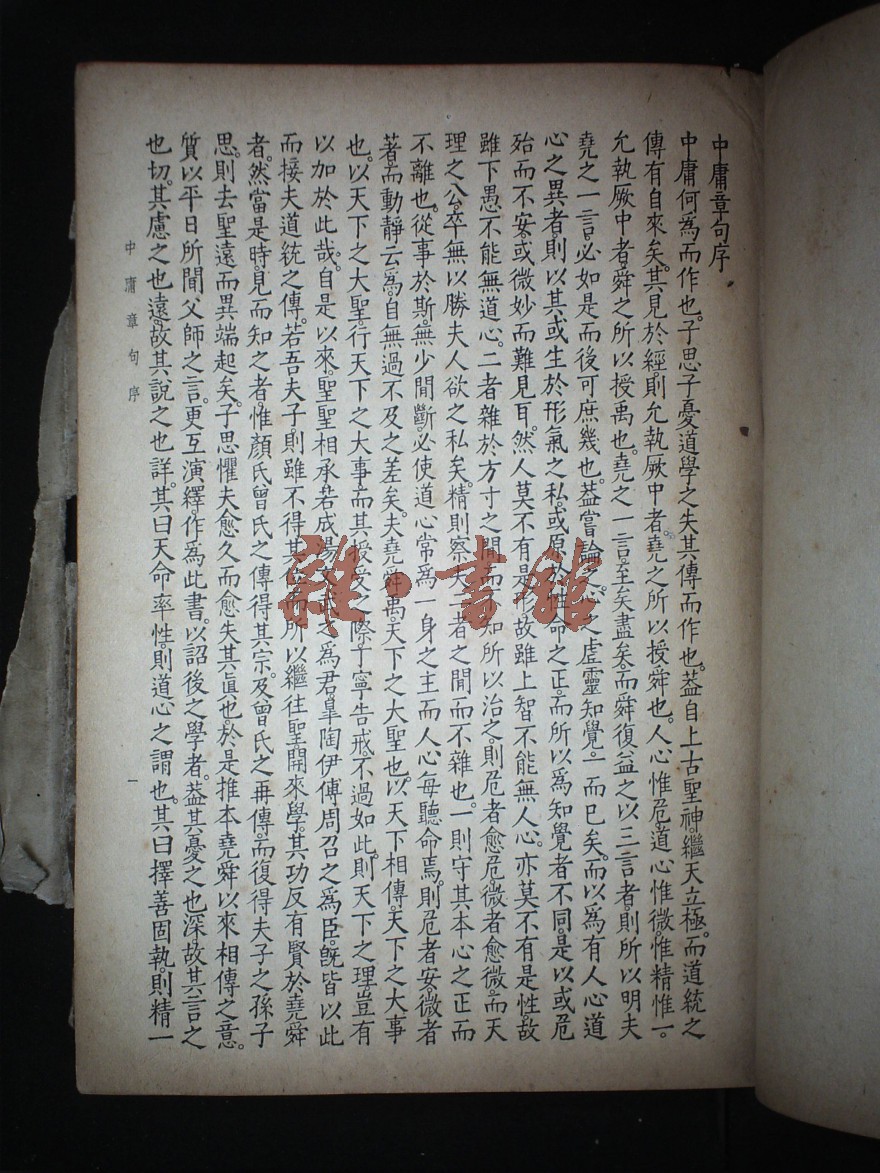 中庸章句序
中庸何爲而作也。子思子憂道學之失其傳而作也。葢自上古聖神。繼天立極。而道統之
傳有自來矣。其見於經。則允執厥中者。堯之所以授舜也。人心惟危。道心惟微。惟精惟一。
允執厥中者。舜之所以授禹也。堯之一言。至矣盡矣。而舜復益之以三言者。則所以明夫
堯之一言。必如是而後可庶幾也。葢嘗論之。心之虛靈知覺。一而已矣。而以爲有人心道
心之異者。則以其或生於形氣之私。或原於性命之正。而所以爲知覺者不同。是以或危
殆而不安。或微妙而難見耳。然人莫不有是形。故雖上智不能無人心。亦莫不有是性。故
雖下愚不能無道心。二者雜於方寸之閒。而不知所以治之。則危者愈危。微者愈微。而天
理之公。卒無以勝夫人欲之私矣。精則察夫二者之閒而不雜也。一則守其本心之正而
不離也。從事於斯。無少閒斷。必使道心常爲一身之主。而人心每聽命焉。則危者安。微者
著。而動靜云爲。自無過不及之差矣。夫堯舜禹。天下之大聖也。以天下相傳。天下之大事
也。以天下之大聖。行天下之大事。而其授受之際。丁寧告戒。不過如此。則天下之理。豈有
以加於此哉。自是以來。聖聖相承。若成湯文武之爲君。臯陶伊傅周召之爲臣。旣皆以此
而接夫道統之傳。若吾夫子。則雖不得其位。而所以繼往聖。開來學。其功反有賢於堯舜
者。然當是時。見而知之者。惟顏氏曾氏之傳得其宗。及曾氏之再傳。而復得夫子之孫子
思。則去聖遠而異端起矣。子思懼夫愈久而愈失其眞也。於是推本堯舜以來相傳之意。
質以平日所聞父師之言。更互演繹。作爲此書。以詔後之學者。葢其憂之也深。故其言之
也切。其慮之也遠。故其說之也詳。其曰天命率性。則道心之謂也。其曰擇善固執。則精一
中庸章句序
一
雜·書館